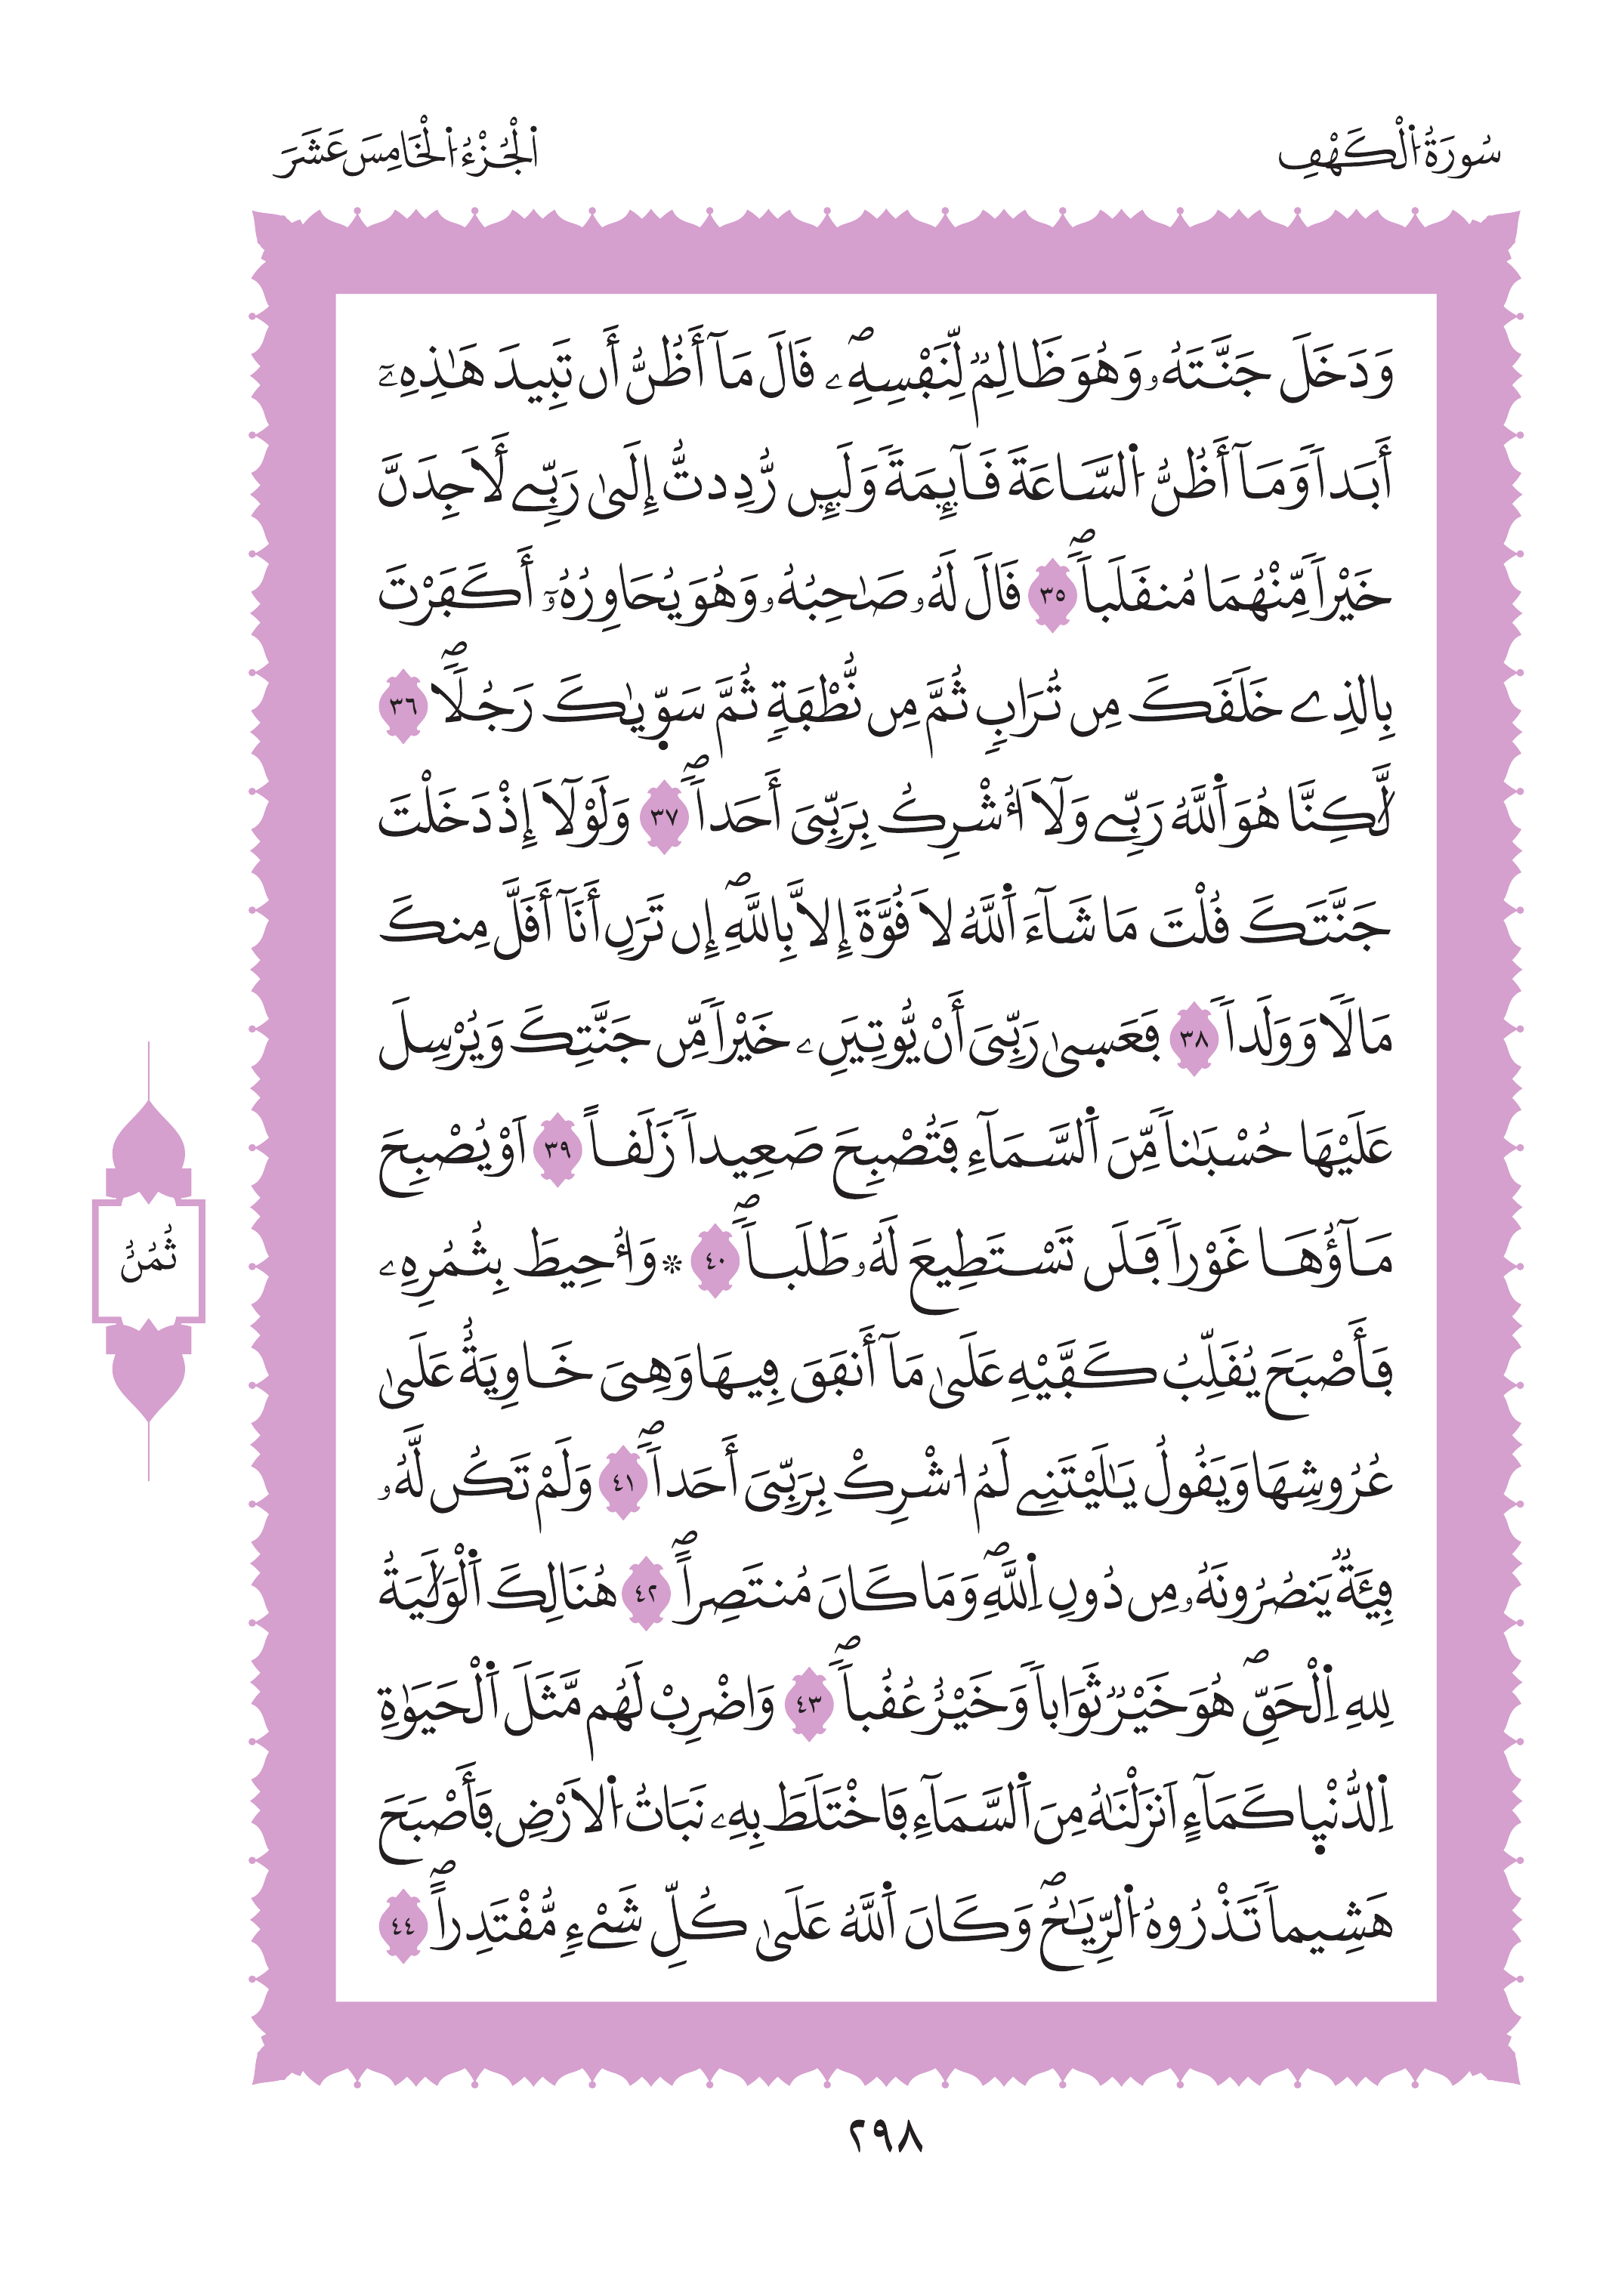 سُورَةُ اُ۬لْكَهْفِ
اَ۬لْجُزْءُ اُ۬لْخَامِسَ عَشَرَ
وَدَخَلَ جَنَّتَهُۥ وَهُوَ ظَالِمٞ لِّنَفْسِهِۦۖ قَالَ مَآ أَظُنُّ أَن تَبِيدَ هَٰذِهِۦٓ
أَبَداٗ وَمَآ أَظُنُّ اُ۬لسَّاعَةَ قَآئِمَةٗ وَلَئِن رُّدِدتُّ إِلَىٰ رَبِّے لَأَجِدَنَّ
خَيْراٗ مِّنْهُمَا مُنقَلَباٗۖ ٣٥ قَالَ لَهُۥ صَٰحِبُهُۥ وَهُوَ يُحَاوِرُهُۥٓ أَكَفَرْتَ
بِالذِے خَلَقَكَ مِن تُرَابٖ ثُمَّ مِن نُّطْفَةٖ ثُمَّ سَوّ۪يٰكَ رَجُلاٗۖ ٣٦
لَّٰكِنَّا هُوَ اَ۬للَّهُ رَبِّے وَلَآ أُشْرِكُ بِرَبِّيَ أَحَداٗۖ ٣٧ وَلَوْلَآ إِذْ دَخَلْتَ
جَنَّتَكَ قُلْتَ مَا شَآءَ اَ۬للَّهُ لَا قُوَّةَ إِلَّا بِاللَّهِۖ إِن تَرَنِ أَنَآ أَقَلَّ مِنكَ
مَالاٗ وَوَلَداٗ ٣٨ فَعَس۪يٰ رَبِّيَ أَنْ يُّوتِيَنِۦ خَيْراٗ مِّن جَنَّتِكَ وَيُرْسِلَ
عَلَيْهَا حُسْبَٰناٗ مِّنَ اَ۬لسَّمَآءِ فَتُصْبِحَ صَعِيداٗ زَلَقاً ٣٩ اَوْ يُصْبِحَ
مَآؤُهَا غَوْراٗ فَلَن تَسْتَطِيعَ لَهُۥ طَلَباٗۖ ٤٠ ۞ وَأُحِيطَ بِثُمُرِهِۦ
فَأَصْبَحَ يُقَلِّبُ كَفَّيْهِ عَلَىٰ مَآ أَنفَقَ فِيهَا وَهِيَ خَاوِيَةٌ عَلَىٰ
عُرُوشِهَا وَيَقُولُ يَٰلَيْتَنِے لَمُ اُشْرِكْ بِرَبِّيَ أَحَداٗۖ ٤١ وَلَمْ تَكُن لَّهُۥ
فِئَةٞ يَنصُرُونَهُۥ مِن دُونِ اِ۬للَّهِۖ وَمَا كَانَ مُنتَصِراًۖ ٤٢ هُنَالِكَ اَ۬لْوَلَٰيَةُ
لِلهِ اِ۬لْحَقِّۖ هُوَ خَيْرٞ ثَوَاباٗ وَخَيْرٌ عُقُباٗۖ ٤٣ وَاضْرِبْ لَهُم مَّثَلَ اَ۬لْحَيَوٰةِ
اِ۬لدُّنْي۪ا كَمَآءٍ اَنزَلْنَٰهُ مِنَ اَ۬لسَّمَآءِ فَاخْتَلَطَ بِهِۦ نَبَاتُ اُ۬لَارْضِ فَأَصْبَحَ
هَشِيماٗ تَذْرُوهُ اُ۬لرِّيَٰحُۖ وَكَانَ اَ۬للَّهُ عَلَىٰ كُلِّ شَےْءٖ مُّقْتَدِراًۖ ٤٤
ثُمُنُ
٢٩٨